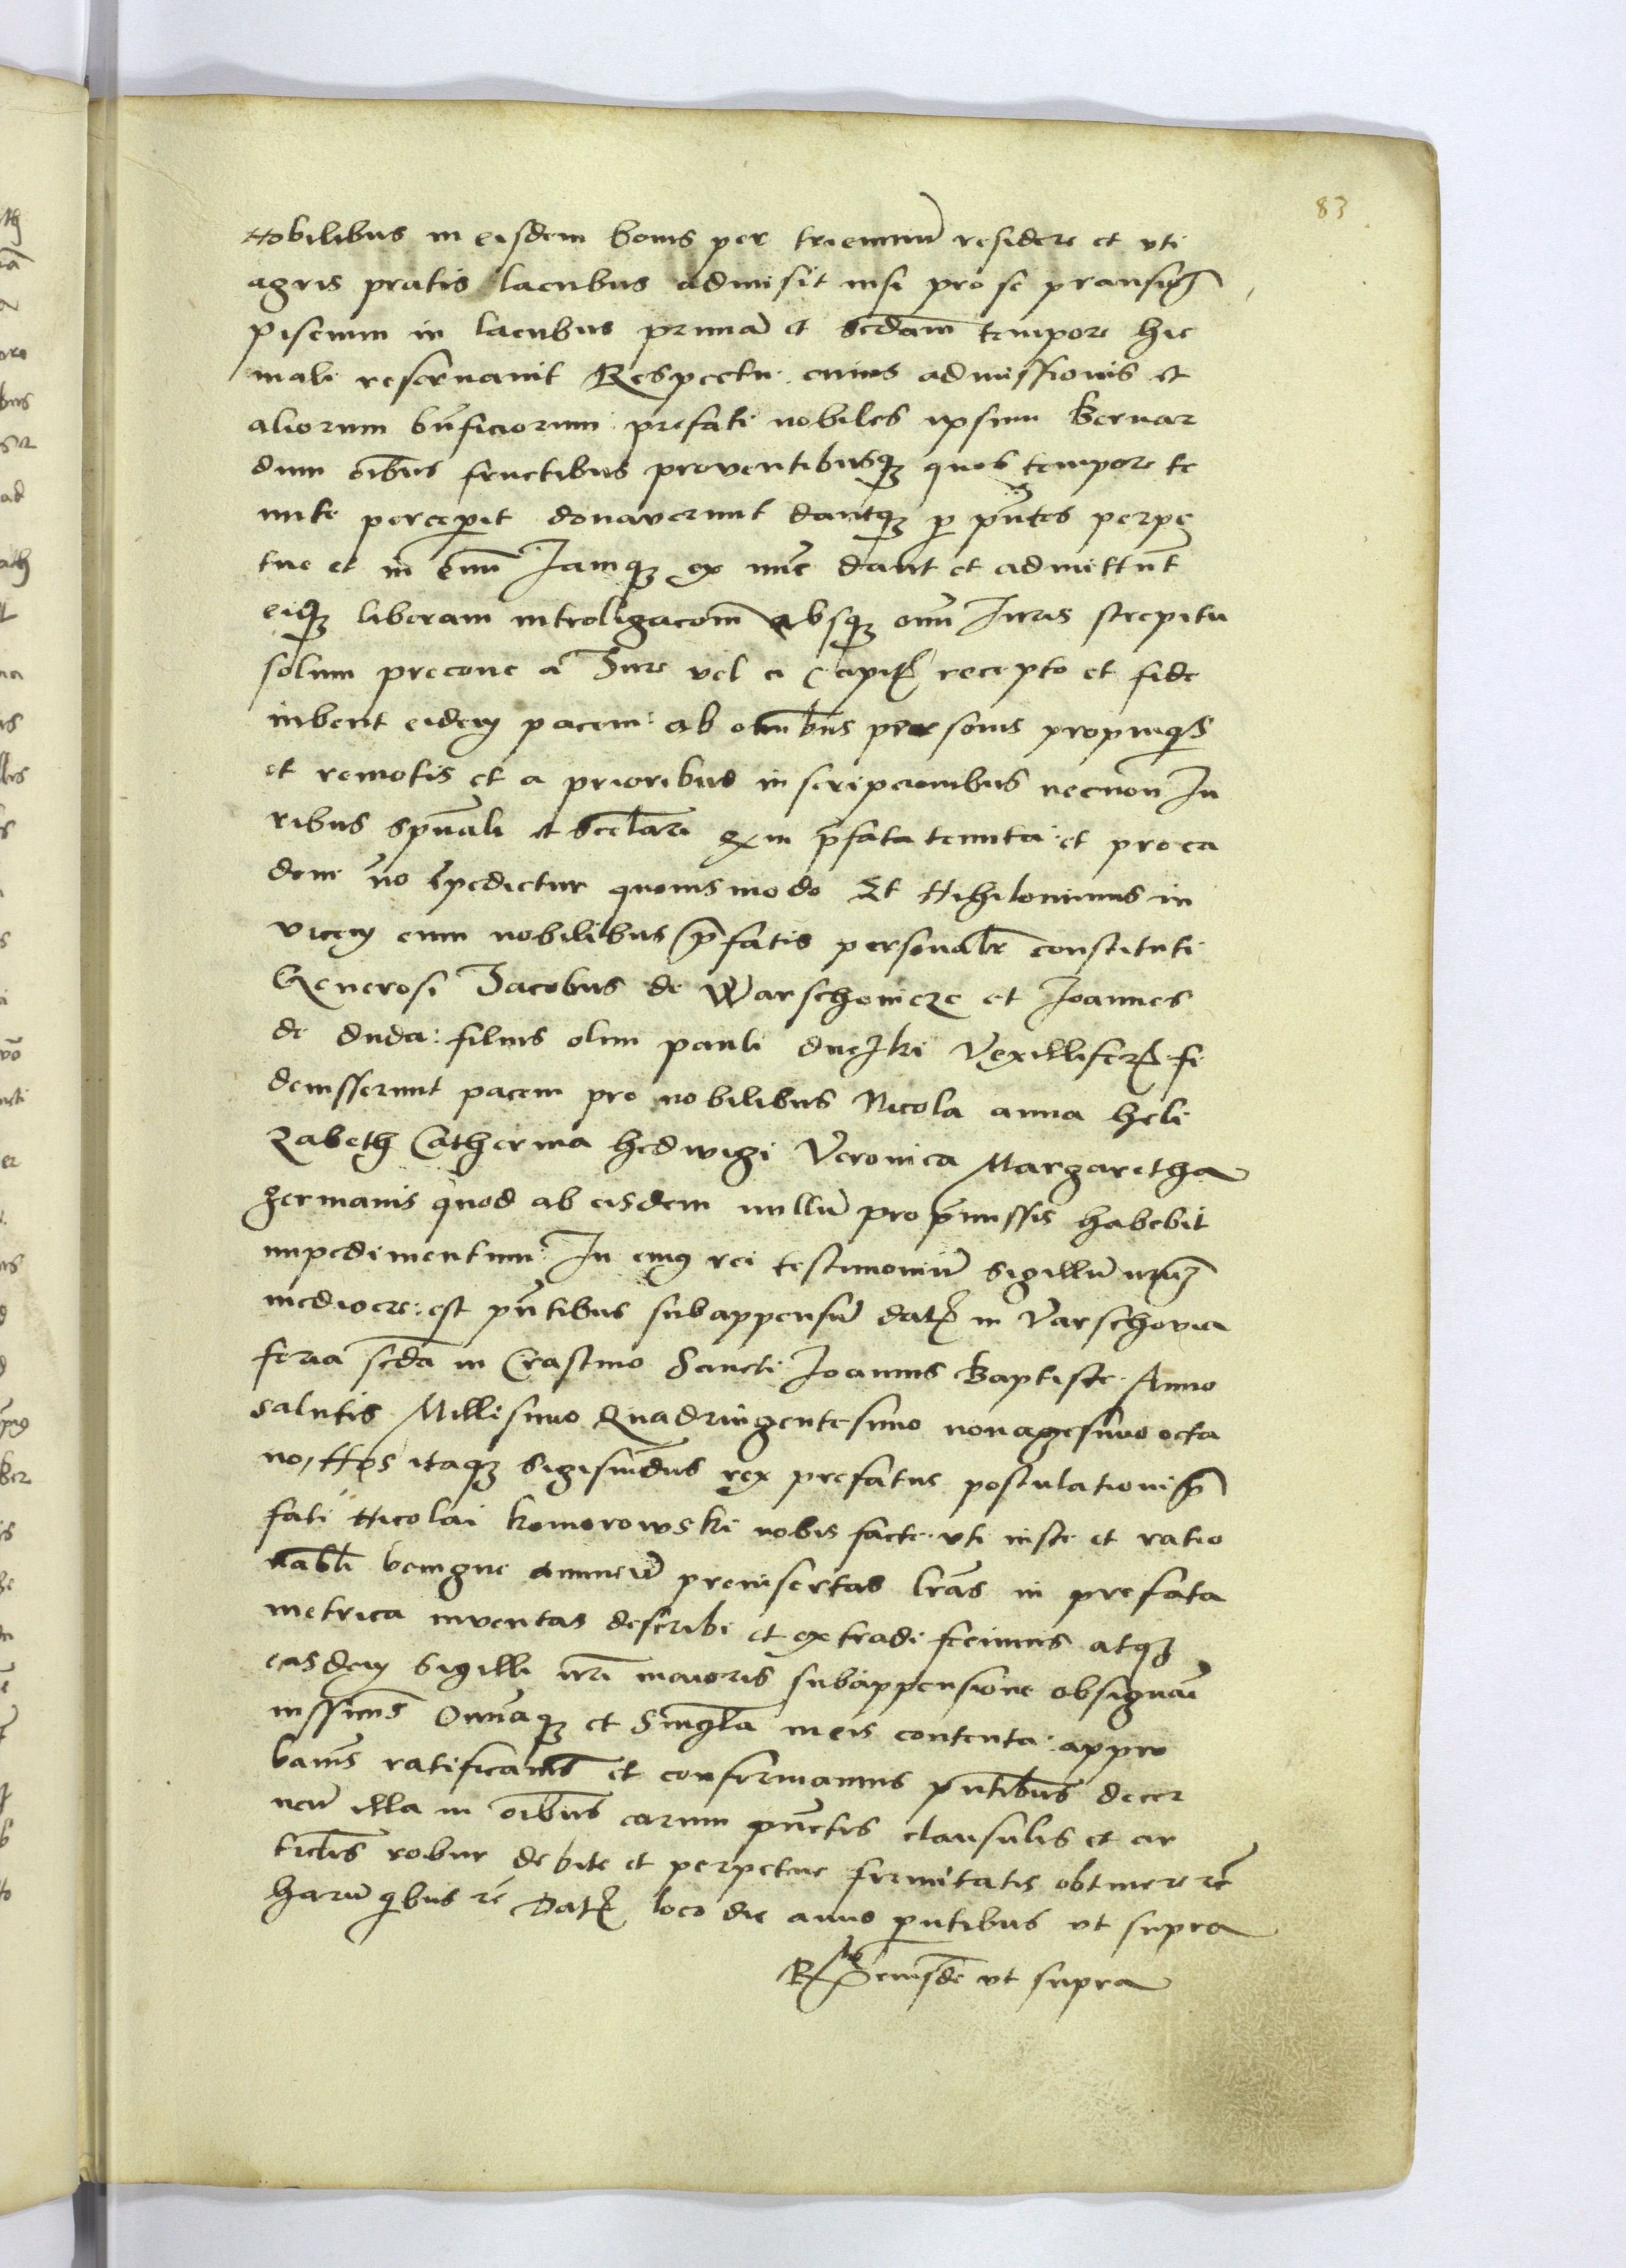 83
Nobilibus in eisdem bonis per trienniũ residere et vti
agris pratis lacubus admisit nisi pro se
piscium in lacubus primã et scdam tempore hie
mali reservavit Respectu cuius admissionis et
aliorum bñficiorum prefati nobiles ipsum Bernar
dum oĩbus fructibus proventibusq quos tempore te
nute percepit donaverunt dantq p pñtes perpe
tue et in euũ Iamq ex nũc dant et admittũt
eiq liberam introligacoñ absq omĩ Iuris strepitu
solum precone a Iure vel a Capit recepto et fide
iubent eidem pacem ab omĩbus personis propinqs
et remotis et a prioribus inscripcionibus necnon Iu
ribus spũali et seclari in p̃fata tenuta et pro ea
dem nõ Ipedietur quovismodo Et Nihilominus in
vicem cum nobilibus p̃fatis personalr constituti
Generosi Jacobus de Warschewicze et Joannes
de duda filius olim pauli Vexilliferi fi
deiusserunt pacem pro nobilibus Nicola anna heli
zabeth Catherina hedwigi Veronica Margaretha
germanis quod ab eisdem nullũ pro p̃missis habebit
impedimentum In cuius rei testimoniũ sigillũ nrũ
mediocre est pñtibus subappensũ dat in Varschovia
feria scdã in Crastino Sancti Joannis Baptiste Anno
salutis Millesimo Quadringentesimo nonagesimo octa
vo, Nos itaq Sigismũdus rex prefatus postulationi p̃
fati Nicolai Komorowski nobis facte vti iuste et ratio
nabli benigne annueñ preinsertas lrãs in prefata
metrica inventas describi et extradi fecimus atq
easdem sigilli nrĩ maioris subappensione obsignari
iussimus Omniaq et Singla in eis contenta appro
bamus ratificamus et confirmamus pñtibus decer
neñ illa in oĩbus earum pũctis clausulis et ar
ticlis robur debite et perpetue firmitatis obtinere rẽ
harũ qibus rẽ Dat loco die anno pñtibus vt supra
Rᵒ eiusdẽ vt supra